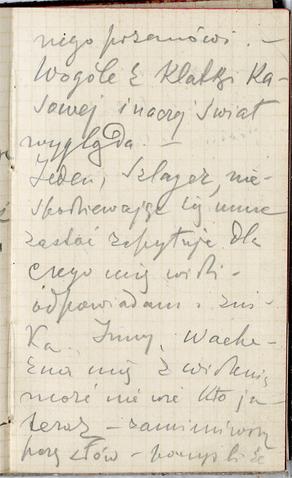 niego przemówi. —
Wogóle z Klatki Ka-
sowej inaczej świat
wygląda. —
Jeden, Szlager, nie-
spodziewając się mnie
zastać zapytuje dla
czego mię widzi —
odpowiadam i zni-
ka. Inny,
mię z widzenia
może nie wie kto ja
teraz — zamieniwszy
parę słów — pomyśli że